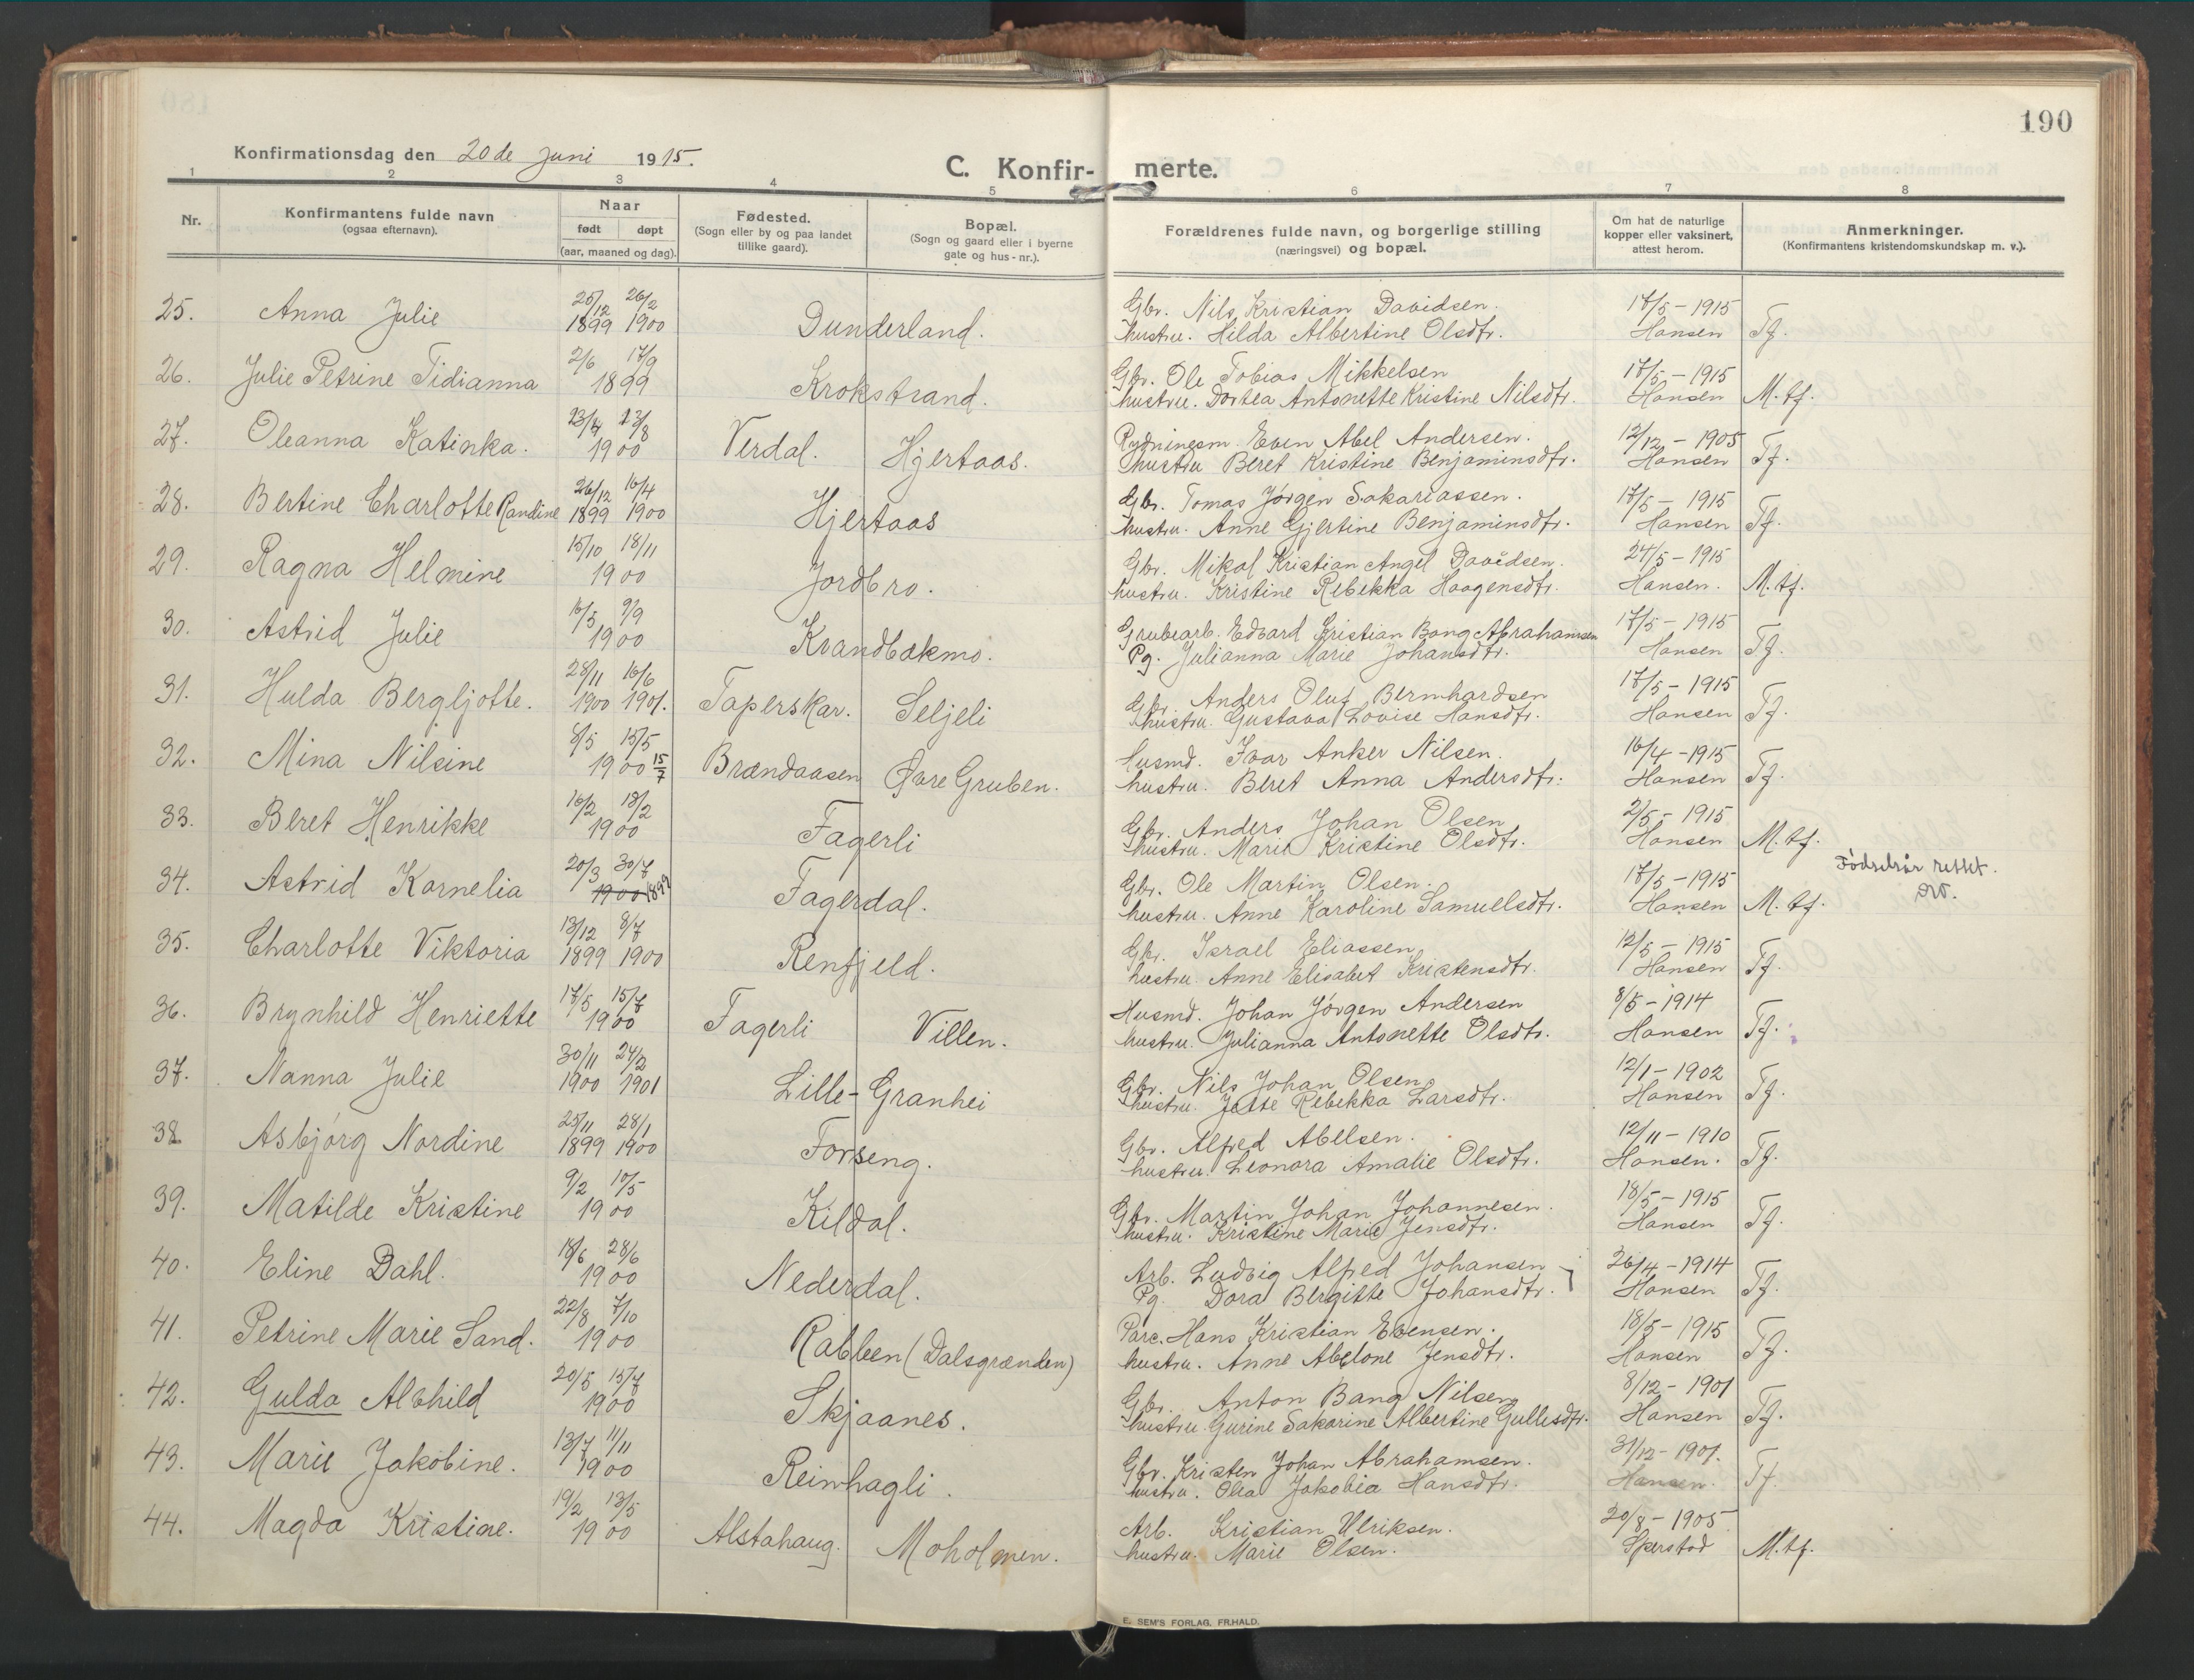 190
Konfirmationsdag den 20de juni 1915.
C. Konfirmerte.
1 2 3 4 5 6 7 8
Nr.
Konfirmantens fulde navn
(ogsaa efternavn).
Naar
født døpt
(aar, maaned og dag).
Fødested.
(Sogn eller by og paa landet
tillike gaard).
Bopæl.
(Sogn og gaard eller i byerne
gate og hus-nr.).
Forældrenes fulde navn, og borgerlige stilling
(næringsvei) og bopæl.
Om hat de naturlige
kopper eller vaksinert,
attest herom.
Anmerkninger.
(Konfirmantens kristendomskundskap m. v.).
25. Anna Julie 25/12 1899 26/2 1900 Dunderland. Gbr. Nils Kristian Davidsen. 17/5 - 1915
hustru. Hilda Albertine Olsdtr. Hansen Tf.
26. Julie Petrine Tidianna 2/6 17/9 1899 Krokstrand. Gbr. Ole Tobias Mikkelsen 17/5 - 1915
hustru. Dortea Antonette Kristine Nilsdtr. Hansen M.tf.
27. Oleanna Katinka. 23/4 23/8 1900 Verdal. Hjertaas. Rydningsm. Even Abel Andersen. 12/12 - 1905
hustru Beret Kristine Benjaminsdtr. Hansen Tf.
28. Bertine Charlotte Randine 26/12 1899 16/4 1900 Hjertaas Gbr. Tomas Jørgen Sakariassen. 17/5 - 1915
hustru. Anne Gjertine Benjaminsdtr. Hansen Tf.
29. Ragna Helmine 15/10 18/11 1900 Jordbro. Gbr. Mikal Kristian Angel Davidsen. 24/5 - 1915
hustru. Kristine Rebekka Haagensdtr. Hansen. M.tf.
30. Astrid Julie 16/5 9/9 1900 Kvandbækmo. Grubearb. Edvard Kristian Bang Abrahamsen 17/5 - 1915
Pg. Julianna Marie Johansdtr. Hansen Tf.
31. Hulda Bergljotte. 28/11 1900 16/6 1901. Taperskar. Seljeli Gbr. Anders Oluf Bernhardsen 17/5 - 1915
hustru. Gustava Lovise Hansdtr. Hansen Tf.
32. Mina Nilsine 8/5 15/5 1900 15/7 Brændaasen Øvre Gruben. Husmd. Ivar Anker Nilsen. 16/4 - 1915
hustru. Beret Anna Andersdtr. Hansen Tf.
33. Beret Henrikke 16/2 18/2 1900 Fagerli Gbr. Anders Johan Olsen 2/5 - 1915
hustru. Marie Kristine Olsdtr. Hansen M.tf.
34. Astrid Kornelia 20/3 30/7 1900 1899 Fagerdal. Gbr. Ole Martin Olsen. 17/5 - 1915 Fødselsår rettet.
hustru. Anne Karoline Samuelsdtr. Hansen M.tf.
35. Charlotte Viktoria 13/12 1899 8/7 1900 Renfjeld. Gbr. Israel Eliassen 12/5 - 1915
hustru Anne Elisabet Kristensdtr. Hansen Tf.
36. Brynhild Henriette 17/5 15/7 1900 Fagerli Villen. Husmd. Johan Jørgen Andersen 8/5 - 1914
hustru. Julianna Antonette Olsdtr. Hansen Tf.
37. Nanna Julie 30/11 1900 24/2 1901 Lille-Granhei Gbr. Nils Johan Olsen 12/1 - 1902
hustru. Jette Rebekka Larsdtr. Hansen Tf.
38 Asbjørg Nordine 25/11 1899 28/1 1900 Forseng. Gbr. Alfred Abelsen. 12/11 - 1910
hustru. Leonora Amalie Olsdtr. Hansen. Tf.
39. Matilde Kristine 9/2 10/5 1900 Kildal. Gbr. Martin Johan Johannesen. 18/5 - 1915
hustru. Kristine Marie Jensdtr. Hansen Tf.
40. Eline Dahl. 18/6 28/6 1900 Nederdal. Arb. Ludvig Alfred Johansen 26/4 - 1914
Pg. Dora Bergitte Johansdtr. Hansen Tf.
41. Petrine Marie Sand. 22/8 7/10 1900 Rabben (Dalsgrænden) Parc. Hans Kristian Evensen. 18/5 - 1915
hustru. Anne Abelone Jensdtr. Hansen Tf.
42. Gulda Alvhild 20/5 15/7 1900 Skjaanes. Gbr. Anton Bang Nilsen 8/12 - 1901
hustru Gurine Sakarine Albertine Gullesdtr. Hansen Tf.
43. Marie Jakobine. 13/7 11/11 1900 Reinhagli. Gbr. Kristen Johan Abrahamsen. 31/12 - 1901.
hustru. Olea Jakobia Hansdtr. Hansen. Tf.
44. Magda Kristine. 19/2 13/5 1900 Alstahaug. Moholmen. Arb. Kristian Ulriksen. 20/8 - 1905
hustru. Marie Olsen. Sperstad M.tf.
E. SEM'S FORLAG, FR.HALD.